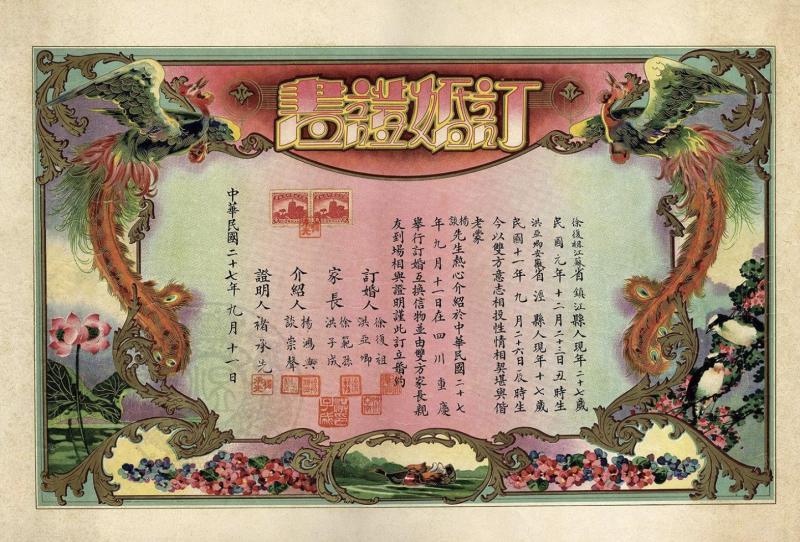 訂婚證書
徐復祖江蘇省鎮江縣人現年二十七歲
民國元年十二月二十三日丑時生
洪亞卿安徽省涇縣人現年十七歲
民國十一年九月二十六日辰時生
今以雙方意志相投性情相契堪與偕
老蒙
楊談先生熱心介紹於中華民國二十七
年九月十一日在四川重慶
舉行訂婚互換信物並由雙方家長親
友到場相與證明謹此訂立婚約
訂婚人 徐復祖 洪亞卿
家長 徐範孫 洪子成
介紹人 楊鴻興 談崇聲
證明人 褚承先
中華民國二十七年九月十一日